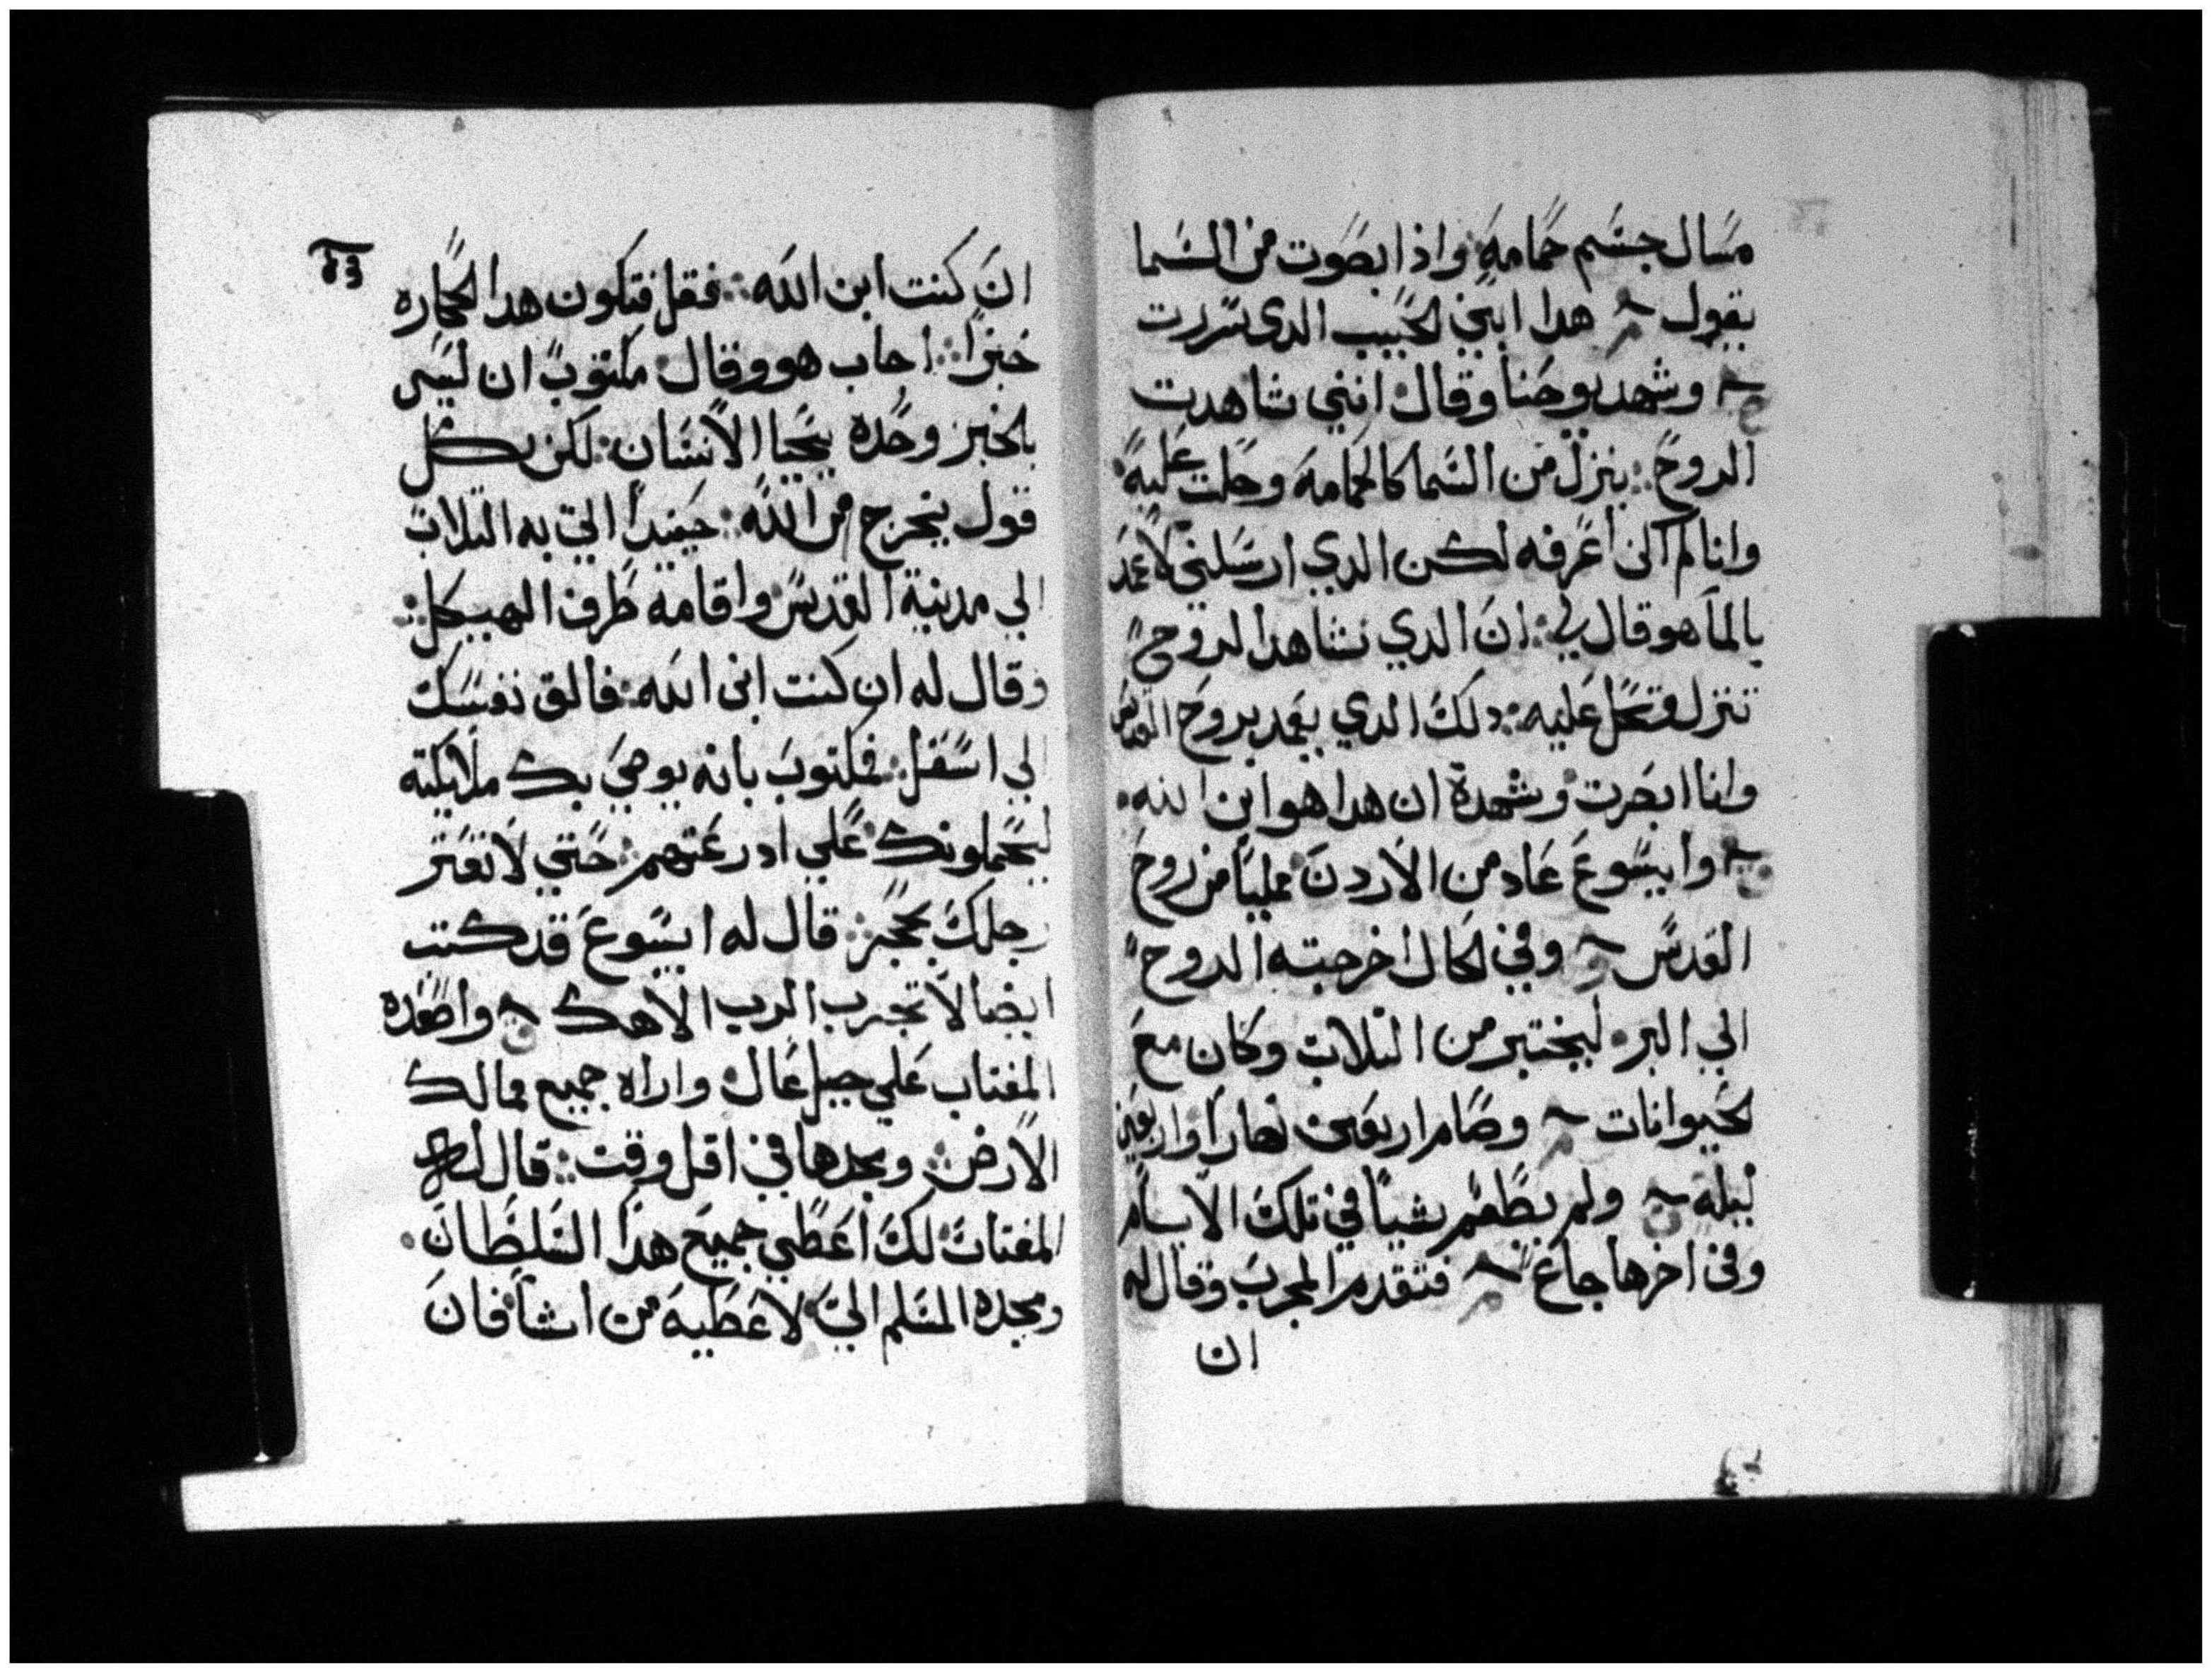 مسال جسم حمامه واذا بصوت من السما
يقول م هدا ابني لحبيب الدى سررت
ح وشهد يوحنا وقال انني شاهدت
الروح ينزل من السما كالحمامه وحلت عليه
وانا لم اكن اعرفه لكن الدي ارسلني لاعمد
بالما هو قال لي ان الدي تشاهد الروح
تنزل وتحل عليه دلك الدي يعمد بروح القدس
وانا ابصرت وشهدة ان هدا هو ابن الله
وايسوع عاد من الاردن ممليا من روح
القدس وفي لحال اخرجته الروح
الي البر ليختبر من التلاب وكان مع
لحيوانات م وصام اربعين نهارا واربعين
ليله ولم يطعم شيا في تلك الايام
وفي اخرها جاع م فتقدم المجرب وقال له
ان
ان كنت ابن الله فقل فتكون هدا الحجاره
خبزا اجاب هو وقال مكتوب ان ليس
بالخبز وحده يحيا الانسان لكن بكل
قول يخرج من الله حينيدا اتي به التلاب
الي مدينة القدس واقامه طرف الهيكل
وقال له ان كنت ابن الله فالق نفسك
الي اسفل فمكتوب بانه يوصي بك ملايكته
ليحملونك علي ادرعتهم حتي لا تعتر
رجلك بحجر قال له ايسوع قد كتب
ايضا لا تجرب الرب الاهك واصعده
المغتاب علي جبل عال واراه جميع ممالك
الارض ومجدها في اقل وقت قال له
المغتاب لك اعطي جميع هدا السلطان
ومجده المسلم الي لاعطيه من اشا فان